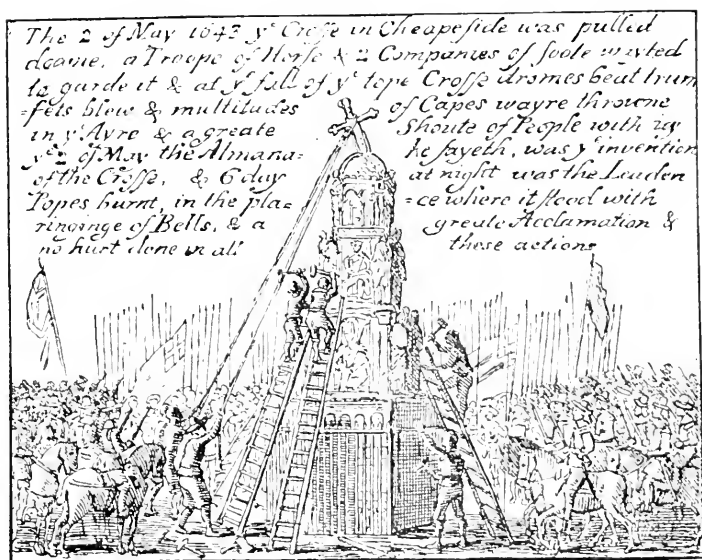 The 2 of May 1643 yͤ Crosse in Cheapeside was pulled
downe, a Troope of Horse & 2 Companies of foote wayted
to garde it & at yͤ fall of yͤ tope Crosse dromes beat trum
=pets blew & multitudes of Capes wayre throwne
in yͤ Ayre & a greate Shoute of People with ioy
yͤ 2 of May the Almana= ke sayeth, was yͤ invention
of the Crosse, & 6 day at night was the Leaden
Popes burnt, in the pla= =ce where it stood with
ringinge of Bells, & a greate Acclamation &
no hurt done in all these actions